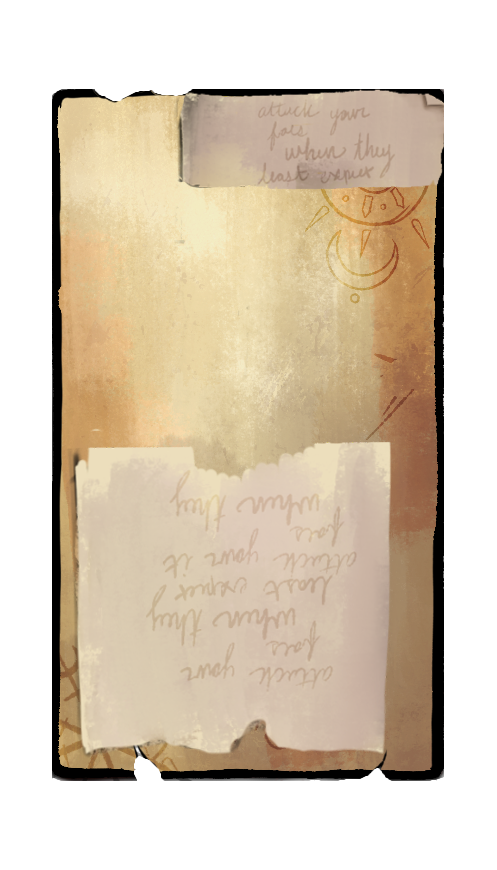 attack your
foes
when they
least expect
attack your
foes
when they
least expect
attack your it
foes
when they